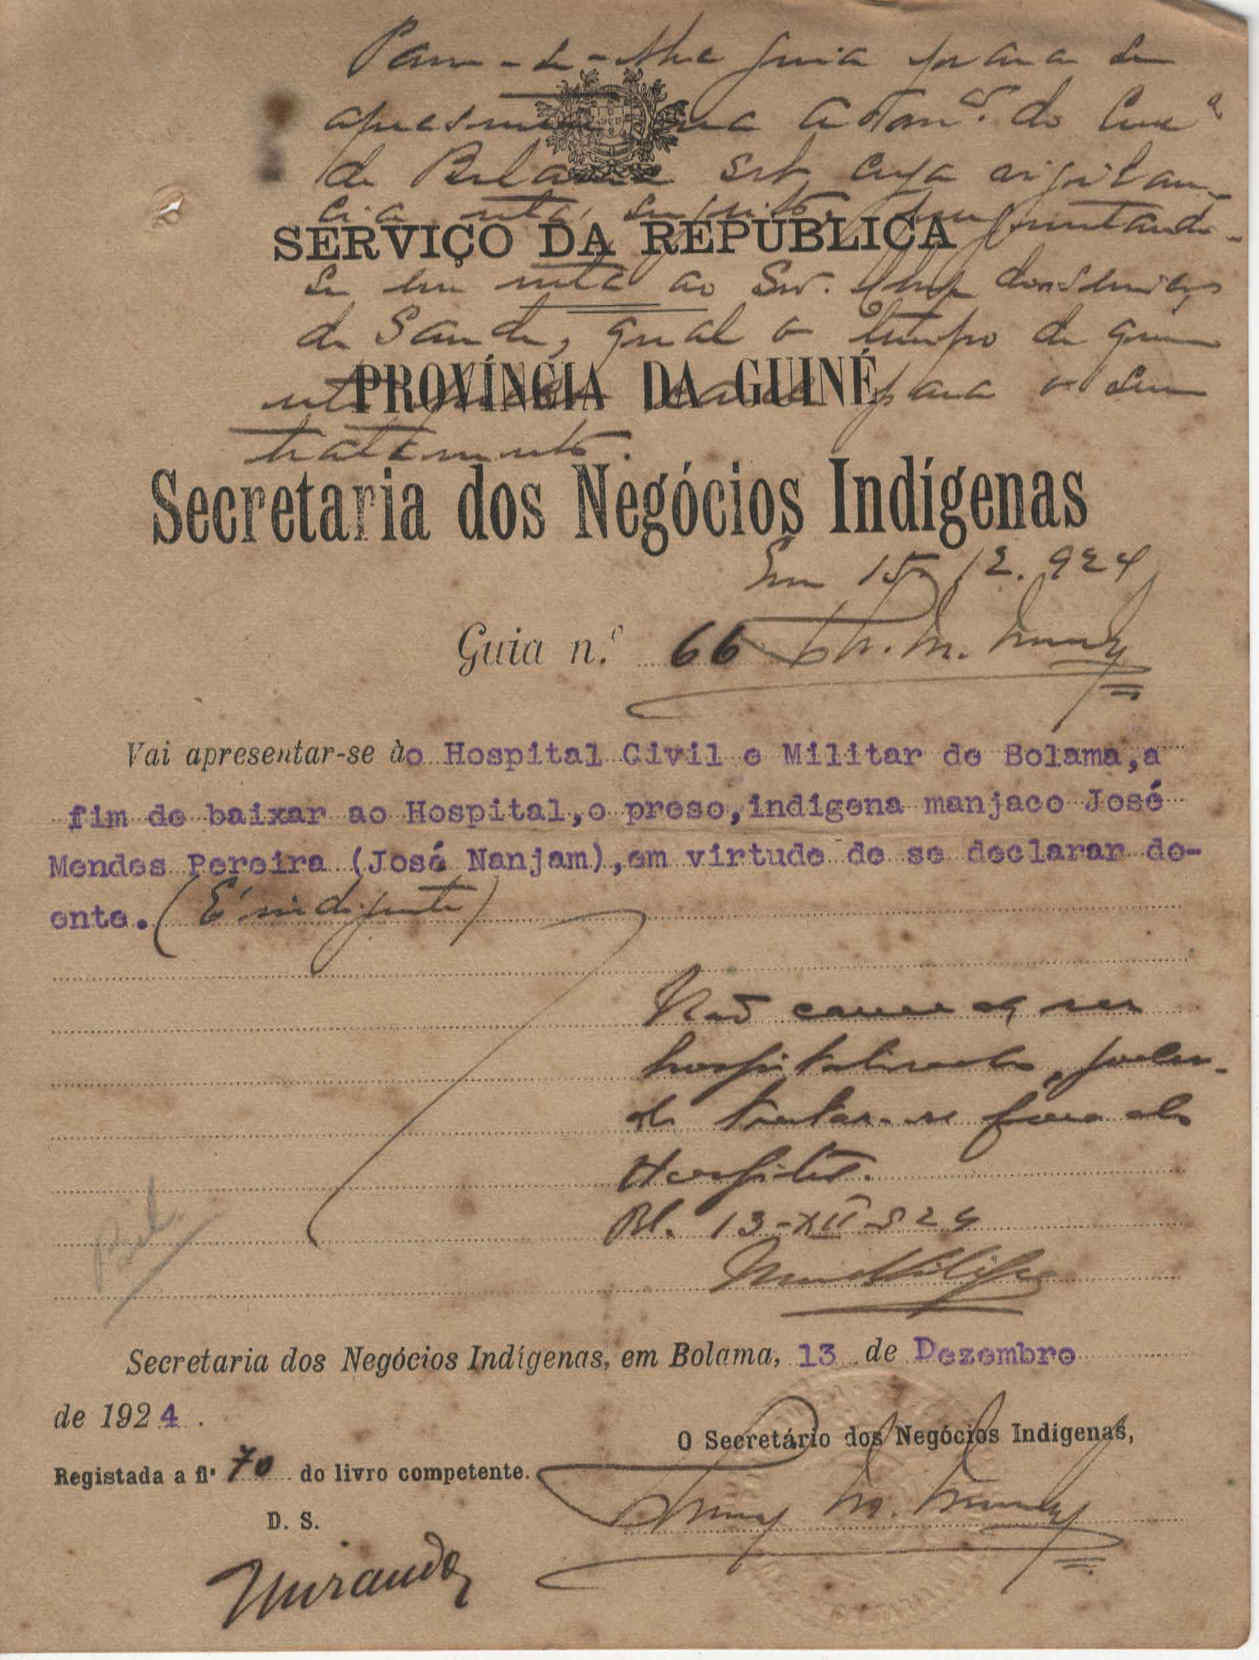 Passe-se-lhe guia para se
apresentar na Adm.ᵃᵒ do
de Bolama sob cuja vigilan-
cia está
SERVIÇO DA REPÚBLICA
se em nota ao Snr. Chefe dos Serviços
de Saude, qual o tempo de que
PROVÍNCIA DA GUINÉ
para o seu
tratamento.
Secretaria dos Negócios Indígenas
Em 15/12.924
Guia n.º 66
Vai apresentar-se ào Hospital Civil e Militar de Bolama,a
fim de baixar ao Hospital,o preso,indigena manjaco José
Mendes Pereira (José Nanjam),em virtude de se declarar do-
ente. (É indigente)
Não carece de ser
hospitalisado, poden-
do tratar-se fora do
Hospital.
Bl. 13-XII-924
Bol.
Secretaria dos Negócios Indígenas, em Bolama, 13 de Dezembro
de 1924.
O Secretário dos Negócios Indígenas,
Registada a fl. 70 do livro competente.
D. S.
Miranda